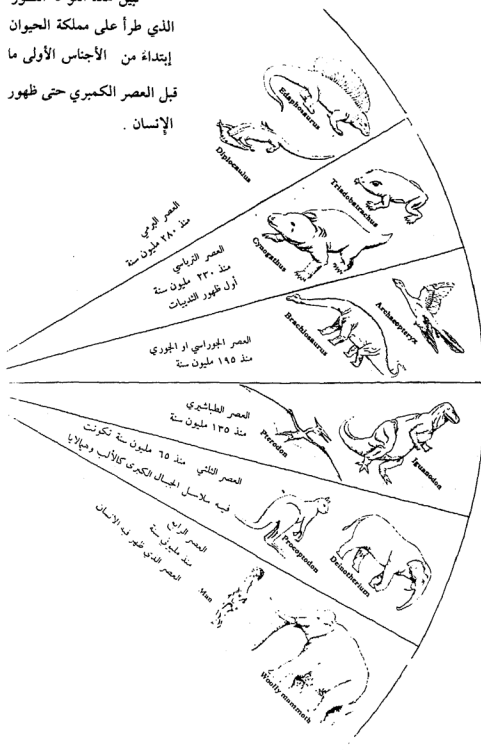 الذي طرأ على مملكة الحيوان
إبتداءً من الأجناس الأولى ما
قبل العصر الكمبري حتى ظهور
الإنسان .
Edaphosaurus
Diplocaulus
العصر البرمي
منذ ٢٨٠ مليون سنة
Triadobatrachus
Cynognathus
العصر الترياسي
منذ ٢٣٠ مليون سنة
أول ظهور الثدييات
Archaeopteryx
Brachiosaurus
العصر الجوراسي او الجوري
منذ ١٩٥ مليون سنة
العصر الطباشيري
منذ ١٣٥ مليون سنة
Pterodon
Iguanodon
العصر الثلثي منذ ٦٥ مليون سنة تكونت
فيه سلاسل الجبال الكبرى كالألب وهملايا
Procoptodon
Deinotherium
العصر الرابع
منذ مليون سنة
العصر الذي ظهر فيه الانسان
Man
Woolly mammoth